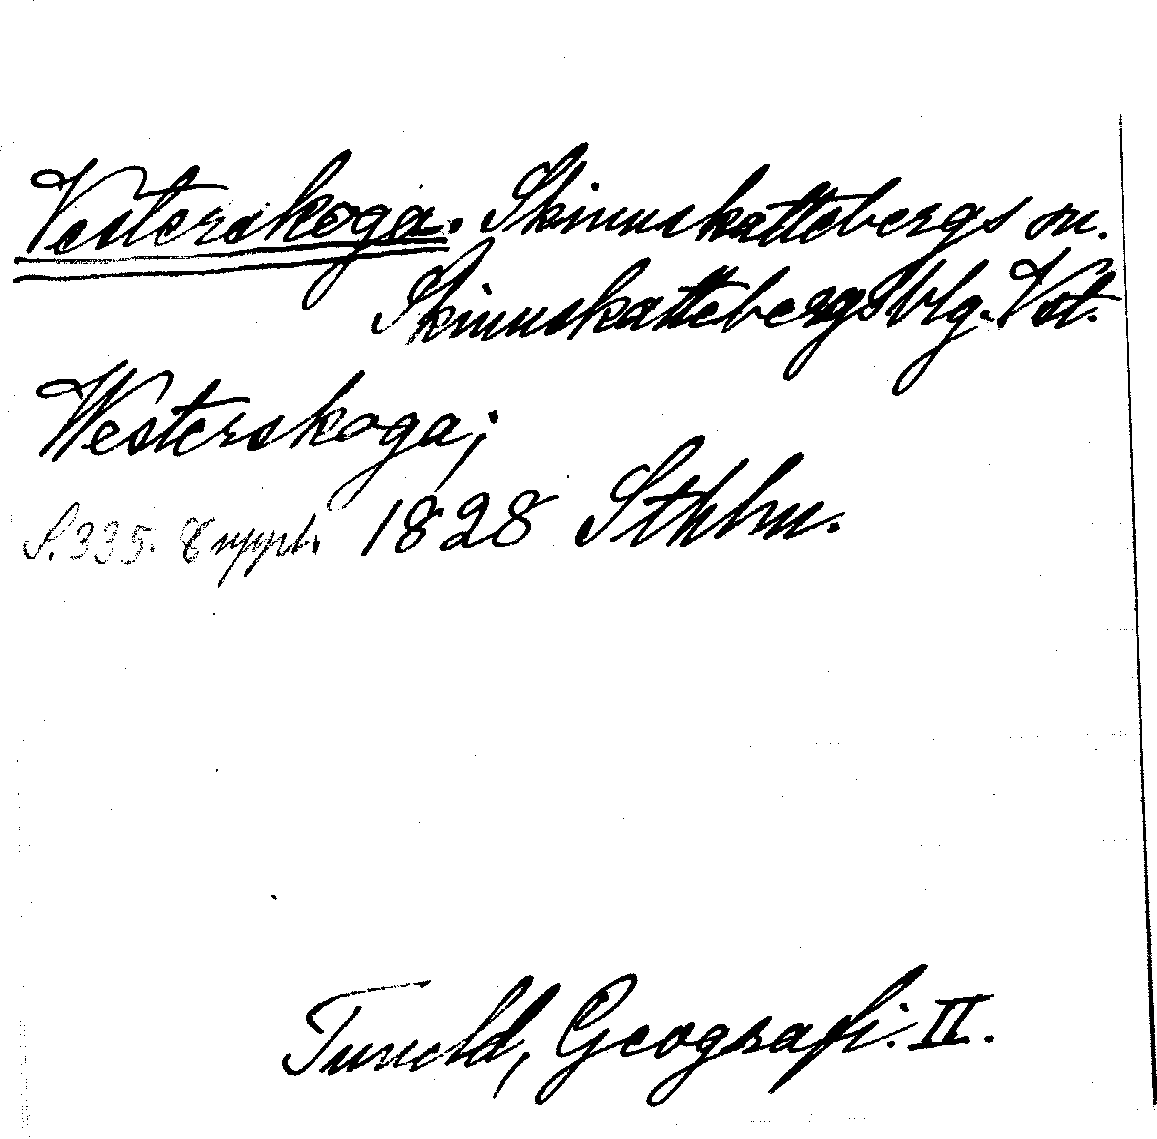 Vesterskoga. Skinnskattebergs sn.
Skinnskattebergs blg. Vst.
Westerskoga;
S. 335. 8 uppl. 1828 Sthlm.
Tuneld, Geografi. II.